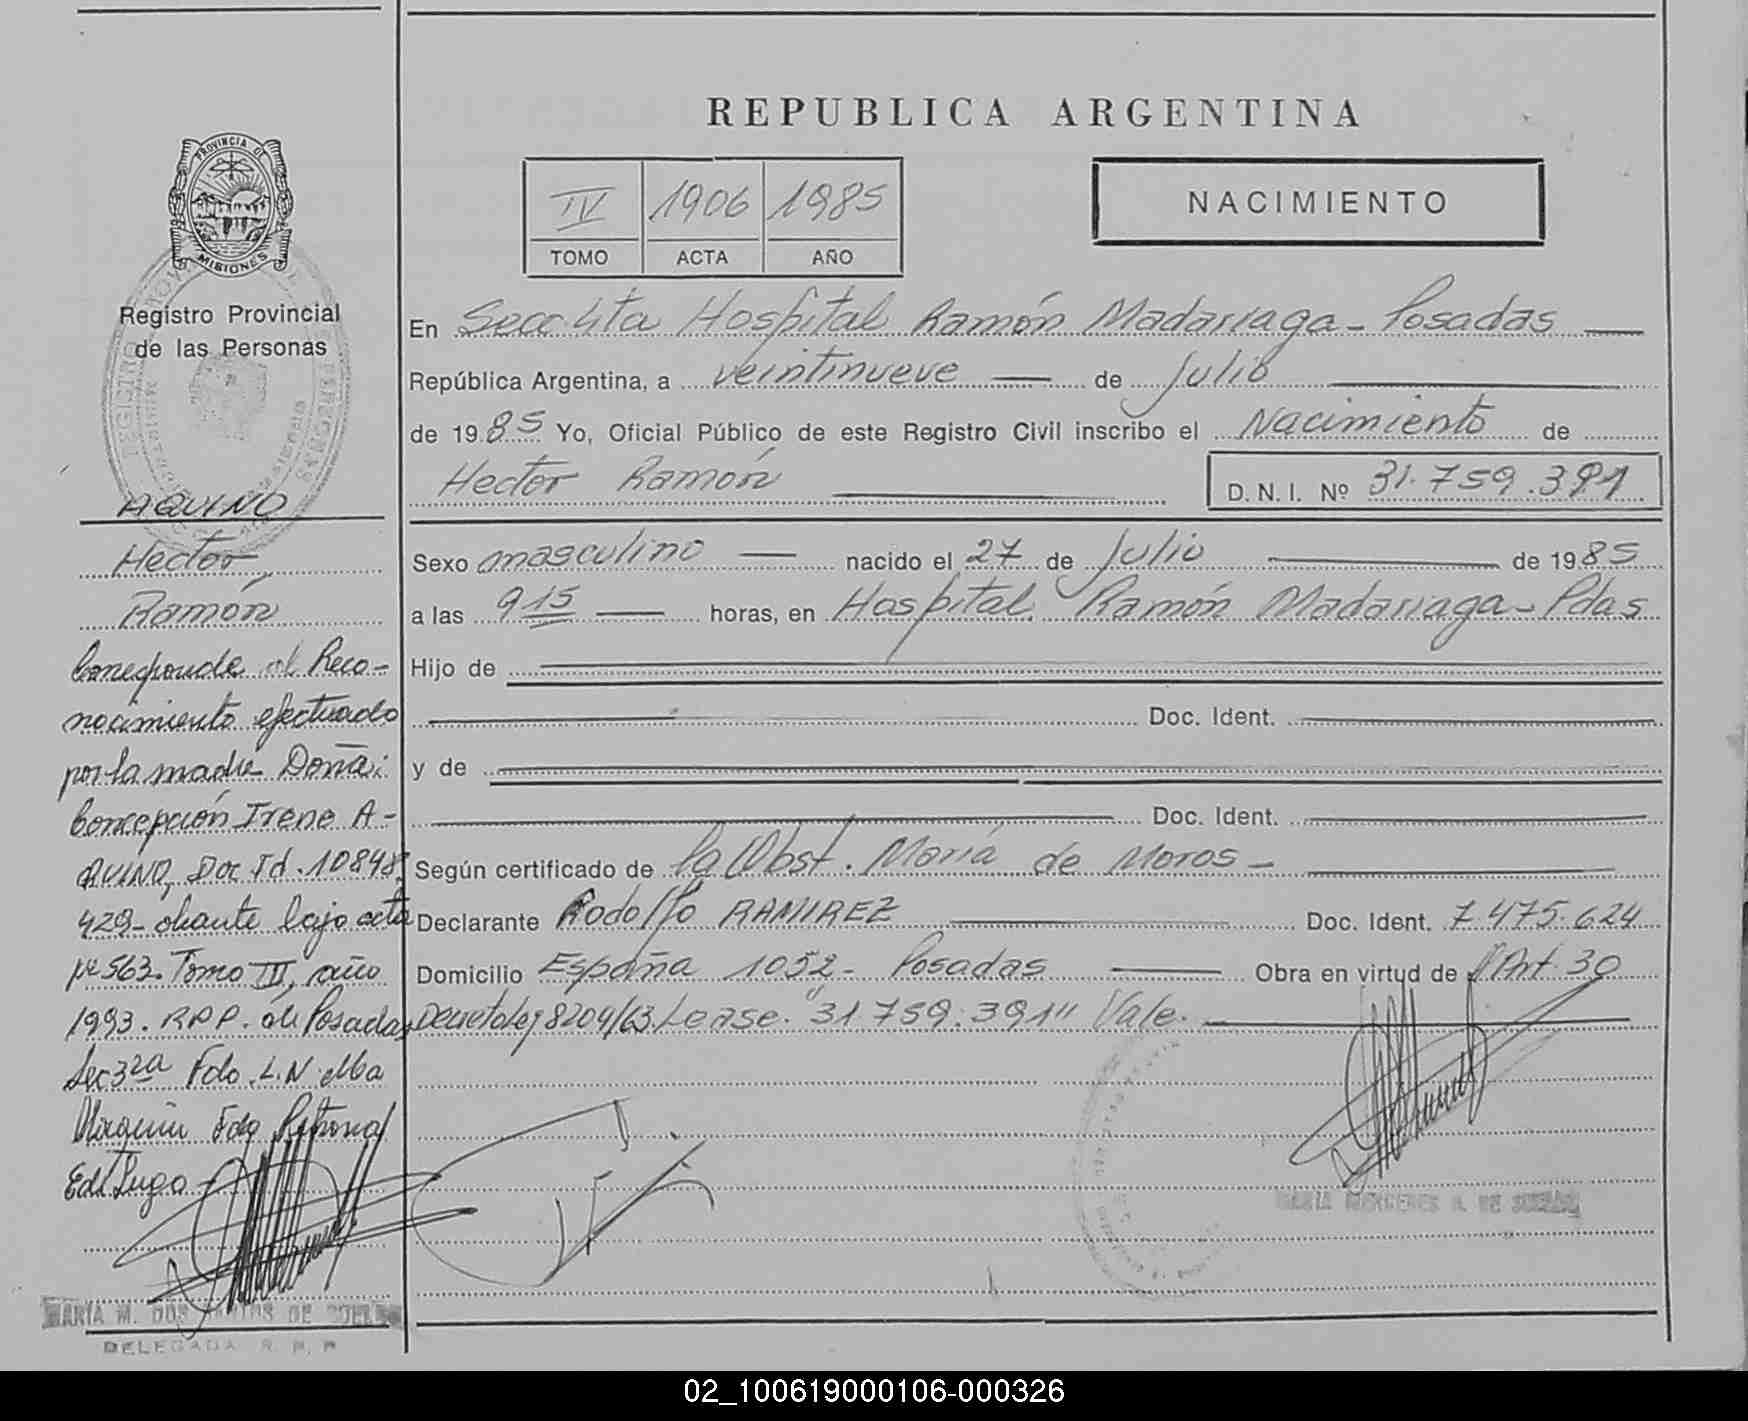 REPUBLICA ARGENTINA
IV 1906 1985
TOMO ACTA AÑO
NACIMIENTO
PROVINCIA DE
MISIONES
Registro Provincial
de las Personas
AQUINO
Hector
Ramón
Corresponde al Reco-
nocimiento efectuado
por la madre Doña:
Concepción Irene A-
QUINO, Doc Id. 10848.
429- obrante bajo acta
Nº 563. Tomo III, año
1993. R.P.P. de Posadas
Sec 32a Fdo. L.N.
Fdo
Lugo
MARIA M. DOS SANTOS DE
DELEGADA R. P. P
En Secc 4ta Hospital Ramón Madariaga - Posadas
República Argentina, a veintinueve de Julio
de 1985 Yo, Oficial Público de este Registro Civil inscribo el Nacimiento de
Hector Ramón D.N.I. Nº 31.759.391
Sexo masculino nacido el 27 de Julio de 1985
a las 9 15 horas, en Hospital Ramón Madariaga - Pdas
Hijo de
Doc. Ident.
y de
Doc. Ident.
Según certificado de la Obst. María de Moros -
Declarante Rodolfo RAMIREZ Doc. Ident. 7.475.624
Domicilio España 1052 - Posadas Obra en virtud de Art. 30
Decreto Ley 8204/63. Lease. "31 759.391" Vale.
MARIA MERCEDES
02_100619000106-000326